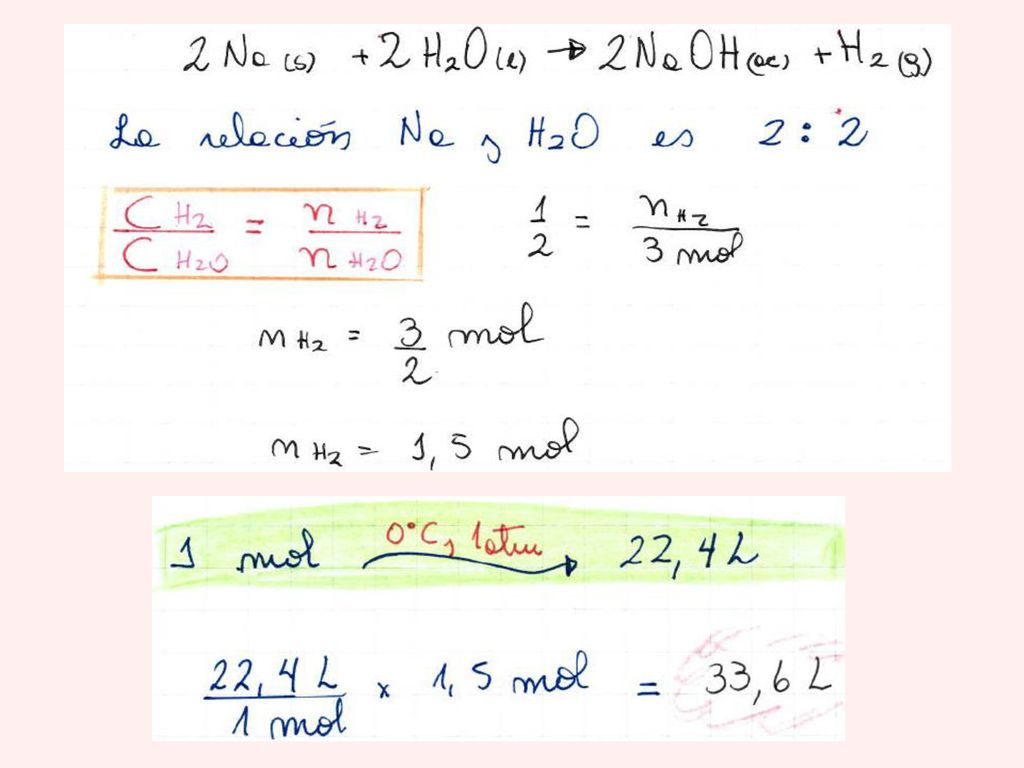 2 Na (s) + 2 H2O (l) → 2 NaOH (ac) + H2 (g)
La relación Na y H2O es 2 : 2
C H2 / C H2O = n H2 / n H2O
1/2 = n H2 / 3 mol
n H2 = 3/2 mol
n H2 = 1,5 mol
1 mol 0°C, 1 atm → 22,4 L
22,4 L / 1 mol x 1,5 mol = 33,6 L